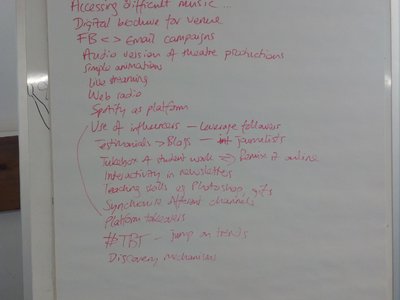 Accessing difficult music...
Digital brochure for venue
FB <> Email campaigns
Audio version of theatre productions
Simple animations
Live streaming
Web radio
Spotify as platform
Use of influencers — Leverage followers
Testimonials > Blogs — Journalists
Jukebox of student work => Remix it online
Interactivity in newsletters
Teaching skills eg Photoshop, gifs
Synchronise different channels
Platform takeovers
#TBT — jump on trends
Discovery mechanisms